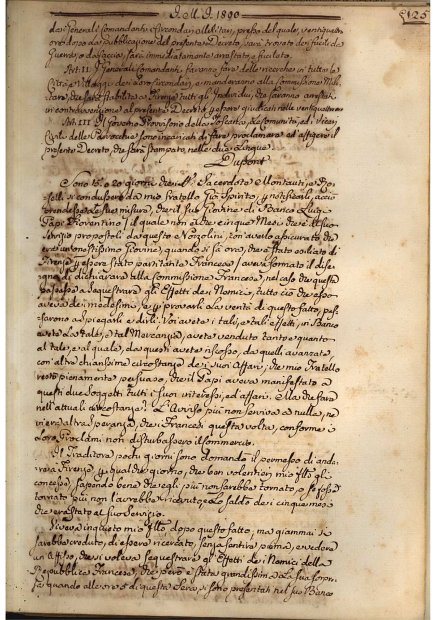 J. M. J. 1800
125
dei Generali Comandanti, e Circondarj Militari, presso del quale, ventiquattro
ore dopo la pubblicazione del presente Decreto, sarà trovato dei fucili da
Guerra, o da Caccia, sarà immediatamente arrestato, e fucilato.
Art. II. I Generali Comandanti faranno fare delle ricerche in tutte le
Città, e Villaggi dei loro Circondarj, e manderanno alla Commissione Mili-
tare, che sarà stabilita a Firenze tutti gl'Individui, che saranno arrestati
in contravvenzione al presente Decreto, per essere giudicati nelle ventiquattro ore
Art. III. Il Governo Provvisorio della Toscana, le Comunità, ed i
delle Parrocchie sono incaricati di fare proclamare, ed affigere il
presente Decreto, che sarà stampato nelle due Lingue.
Dupont
Sono 15. o 20 giorni che il Sacerdote Montauti, e
si condussero da mio Fratello Gio. Spirito, e notificarli, accu
sue misure, che il suo Giovine di Banco Luigi
Papi Fiorentino, il quale non è che cinque Mesi che è al suo
servizio propostoli da questo e Norzolini, con averlo assicurato, che
era un onestissimo Giovine, quando si sa ora, che è stato esiliato di
Firenze per essere stato partitante Francese, aveva formato il dise-
gno di dichiarare alla Commissione Francese, nel caso che questa
passasse a sequestrare gli Effetti dei Nemici, tutto ciò che esso
aveva dei medesimi, e per provarli la verità di questo fatto, pas-
sarono a spiegarli, e dirli. Voi avete i tali, e tali effetti, in Banco
avete la tale, e tal Mercanzia, avete venduto tante, e quante
al tale, e al quale, da questi avete riscosso, da quelli avanzate,
con altre chiarissime circostanze dei suoi Affari; che mio Fratello
restò pienamente persuaso, che il Papi aveva manifestato a
questi due soggetti tutti i suoi interessi, ed affari. Ma che fare
nell'attuali circostanze? L'Avviso più non serviva a nulla, ne
vi era altra speranza, che i Francesi questa volta, conforme i
loro Proclami non disturbassero il commercio.
Il Traditore pochi giorni sono domandò il permesso di anda-
re a Firenze per qualche giorno, che ben volentieri mio Fratello gli
concesse, sapendo bene che egli più non sarebbe tornato, o se fosse
tornato più non l'avrebbe ricevuto, e lo saldò dei cinque mesi
che era stato al suo servizio.
Viveva inquieto mio Fratello dopo questo fatto; ma giammai si
sarebbe creduto, di essere ricercato, senza sentire prima, e vedere
un Affisso, che si voleva sequestrare gli Effetti dei Nemici della
Repubblica Francese, che però è stata grandissima la sua sorpre-
sa quando alle ore 5 di questa sera, si sono presentati nel suo Banco